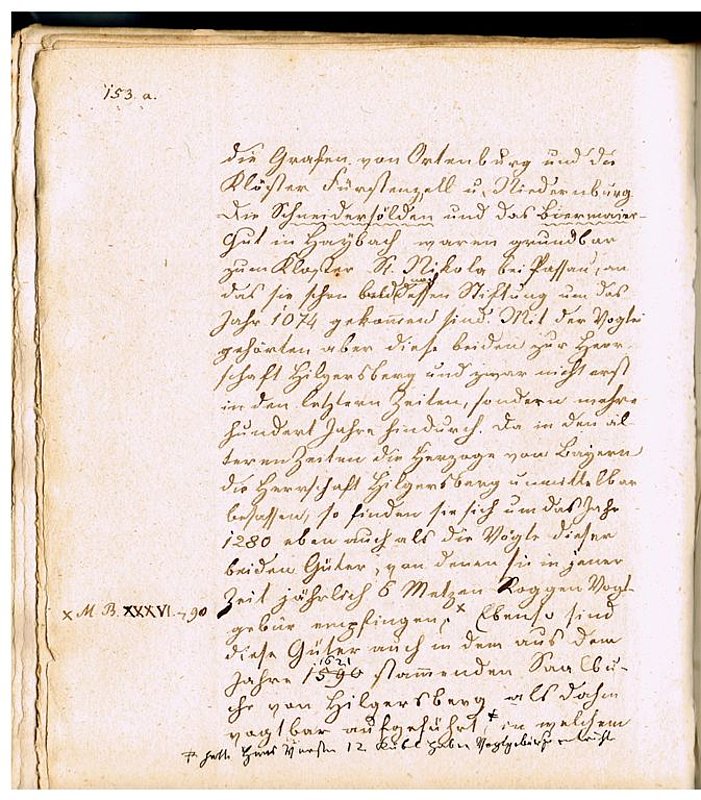 153. a.
die Grafen von Ortenburg und die
Klöster Fürstenzell u. Niedernburg.
Die Schneidersölden und das Biermaier-
Gut in Haybach waren grundbar
zum Kloster St. Nikola bei Passau, an
das sie schon bald dessen Stiftung um das
Jahr 1074 gekommen sind. Mit der Vogtei
gehörten aber diese beiden zur Herr-
schaft Hilgersberg und zwar nicht erst
in den letztern Zeiten, sondern mehre
hundert Jahre hindurch. Da in den äl-
teren Zeiten die Herzoge von Bayern
die Herrschaft Hilgersberg unmittelbar
besassen, so finden sie sich um das Jahr
1280 eben auch als die Vögte dieser
beiden Güter, von denen sie in jener
Zeit jährlich 6 Metzen Roggen Vogt-
x M. B. XXXVI. 90
gebür empfingen. x Ebenso sind
diese Güter auch in dem aus dem
1621
Jahre 1590 stammenden Saalbu-
che von Hilgersberg als dahin
vogtbar aufgeführt ‡ in welchem
‡ 12 Kübl Haber Vogtgebür